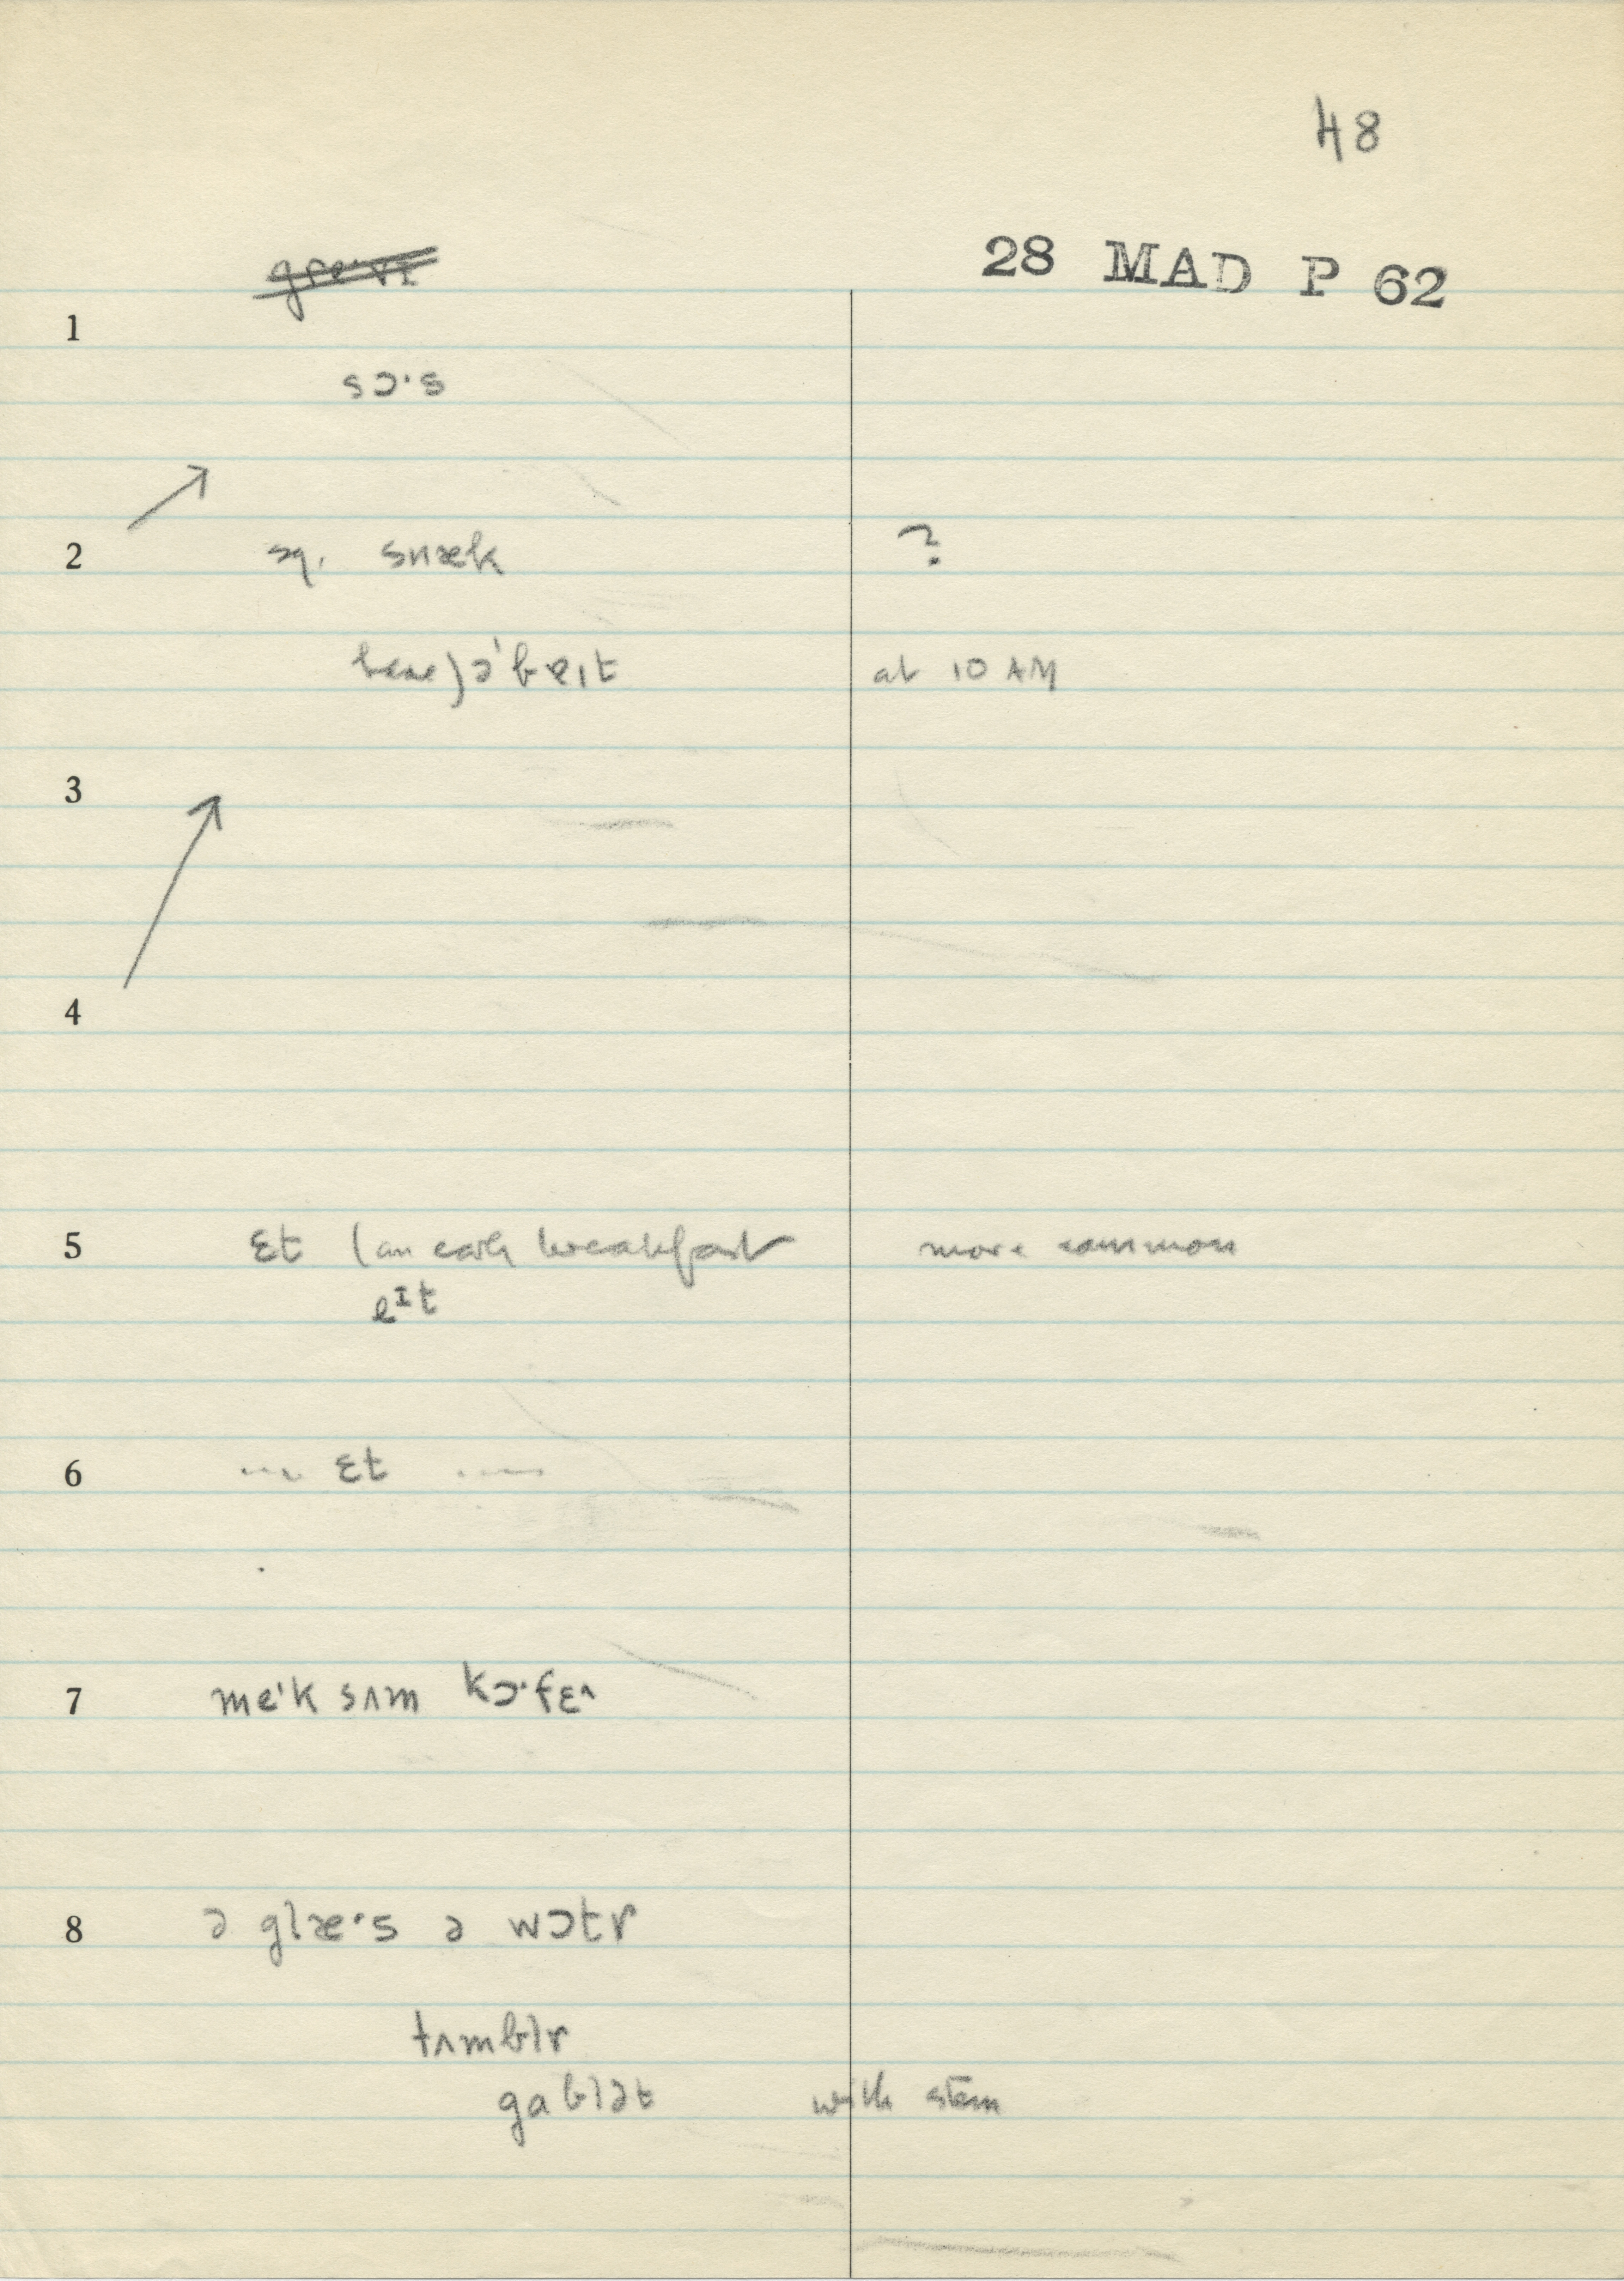 48
28 MAD P 62
gre·vɪ
1
sɔ·s
2 sq. snæk ?
have) ə'beɪt at 10 AM
3
4
5 ɛt (an early breakfast more common
eɪt
6 ... ɛt ....
7 me·k sʌm kɔ·fɛ^
8 ə glæ·s ə wɔtr
tʌmblr
gablət with stem